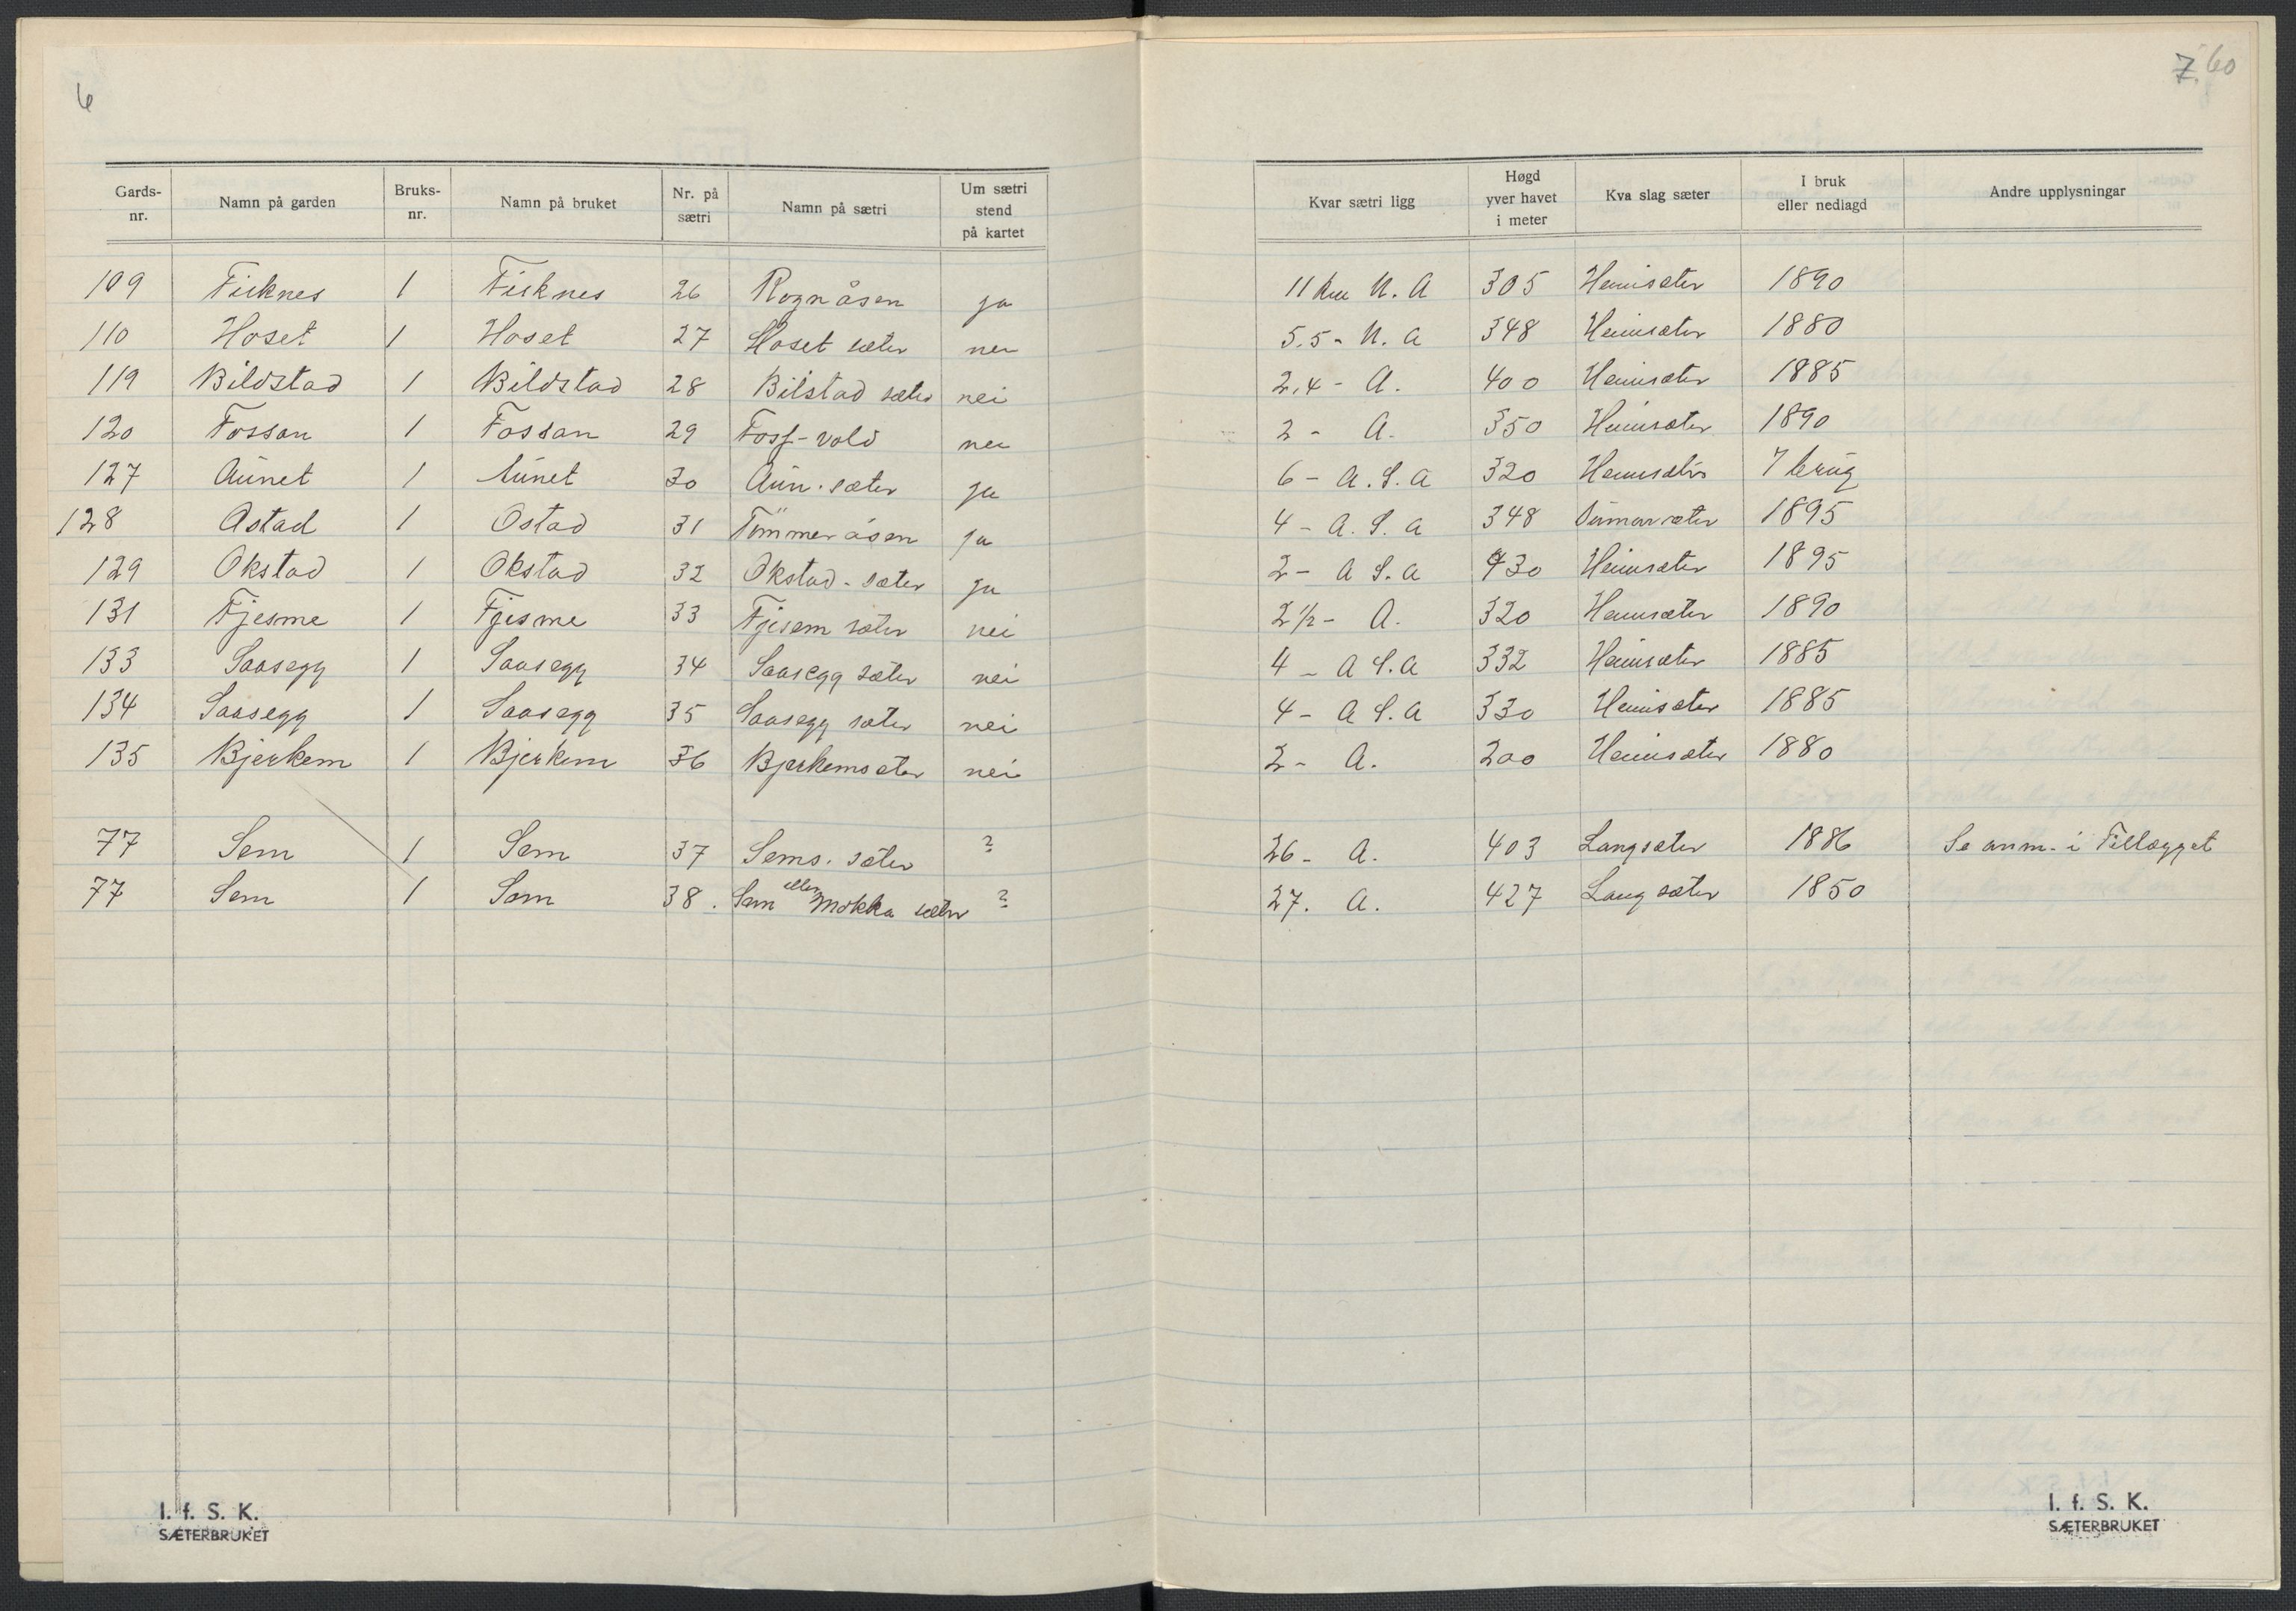 6
7.60
Gards-nr. | Namn på garden | Bruks-nr. | Namn på bruket | Nr. på sætri | Namn på sætri | Um sætri stend på kartet | Kvar sætri ligg | Høgd yver havet i meter | Kva slag sæter | I bruk eller nedlagd | Andre upplysningar
109 | Fisknes | 1 | Fisknes | 26 | Rognåsen | ja | 11 km N. A | 305 | Heimsæter | 1890
110 | Hoset | 1 | Hoset | 27 | Hoset sæter | nei | 5.5 - N. A | 348 | Heimsæter | 1880
119 | Bildstad | 1 | Bildstad | 28 | Bilstad sæter | nei | 2,4 - A. | 400 | Heimsæter | 1885
120 | Fossan | 1 | Fossan | 29 | Foss-vold | nei | 2 - A. | 350 | Heimsæter | 1890
127 | Aunet | 1 | Aunet | 30 | Aun-sæter | ja | 6 - A. S. A | 320 | Heimsæter | I brug
128 | Østad | 1 | Østad | 31 | Tømmeråsen | ja | 4 - A. S. A | 348 | Sumarsæter | 1895
129 | Okstad | 1 | Okstad | 32 | Okstad-sæter | ja | 2 - A S. A | 430 | Heimsæter | 1895
131 | Fjesme | 1 | Fjesme | 33 | Fjesem sæter | nei | 2 1/2 - A. | 320 | Heimsæter | 1890
133 | Saasegg | 1 | Saasegg | 34 | Saasegg sæter | nei | 4 - A S. A | 332 | Heimsæter | 1885
134 | Saasegg | 1 | Saasegg | 35 | Saasegg sæter | nei | 4 - A S. A | 330 | Heimsæter | 1885
135 | Bjerkem | 1 | Bjerkem | 36 | Bjerkemsæter | nei | 2 - A. | 200 | Heimsæter | 1880
77 | Sem | 1 | Sem | 37 | Sems. sæter | ? | 26 - A. | 403 | Langsæter | 1886 | Se anm. i Tillægget
77 | Sem | 1 | Sem | 38. | Sem eller Mokka sæter | ? | 27. A. | 427 | Langsæter | 1850
I. f. S. K.
SÆTERBRUKET
I. f. S. K.
SÆTERBRUKET